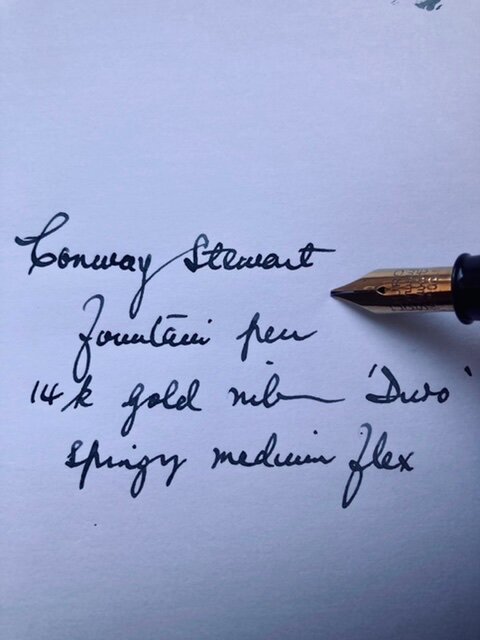 Conway Stewart
fountain pen
14k gold nib 'Duro'
springy medium flex